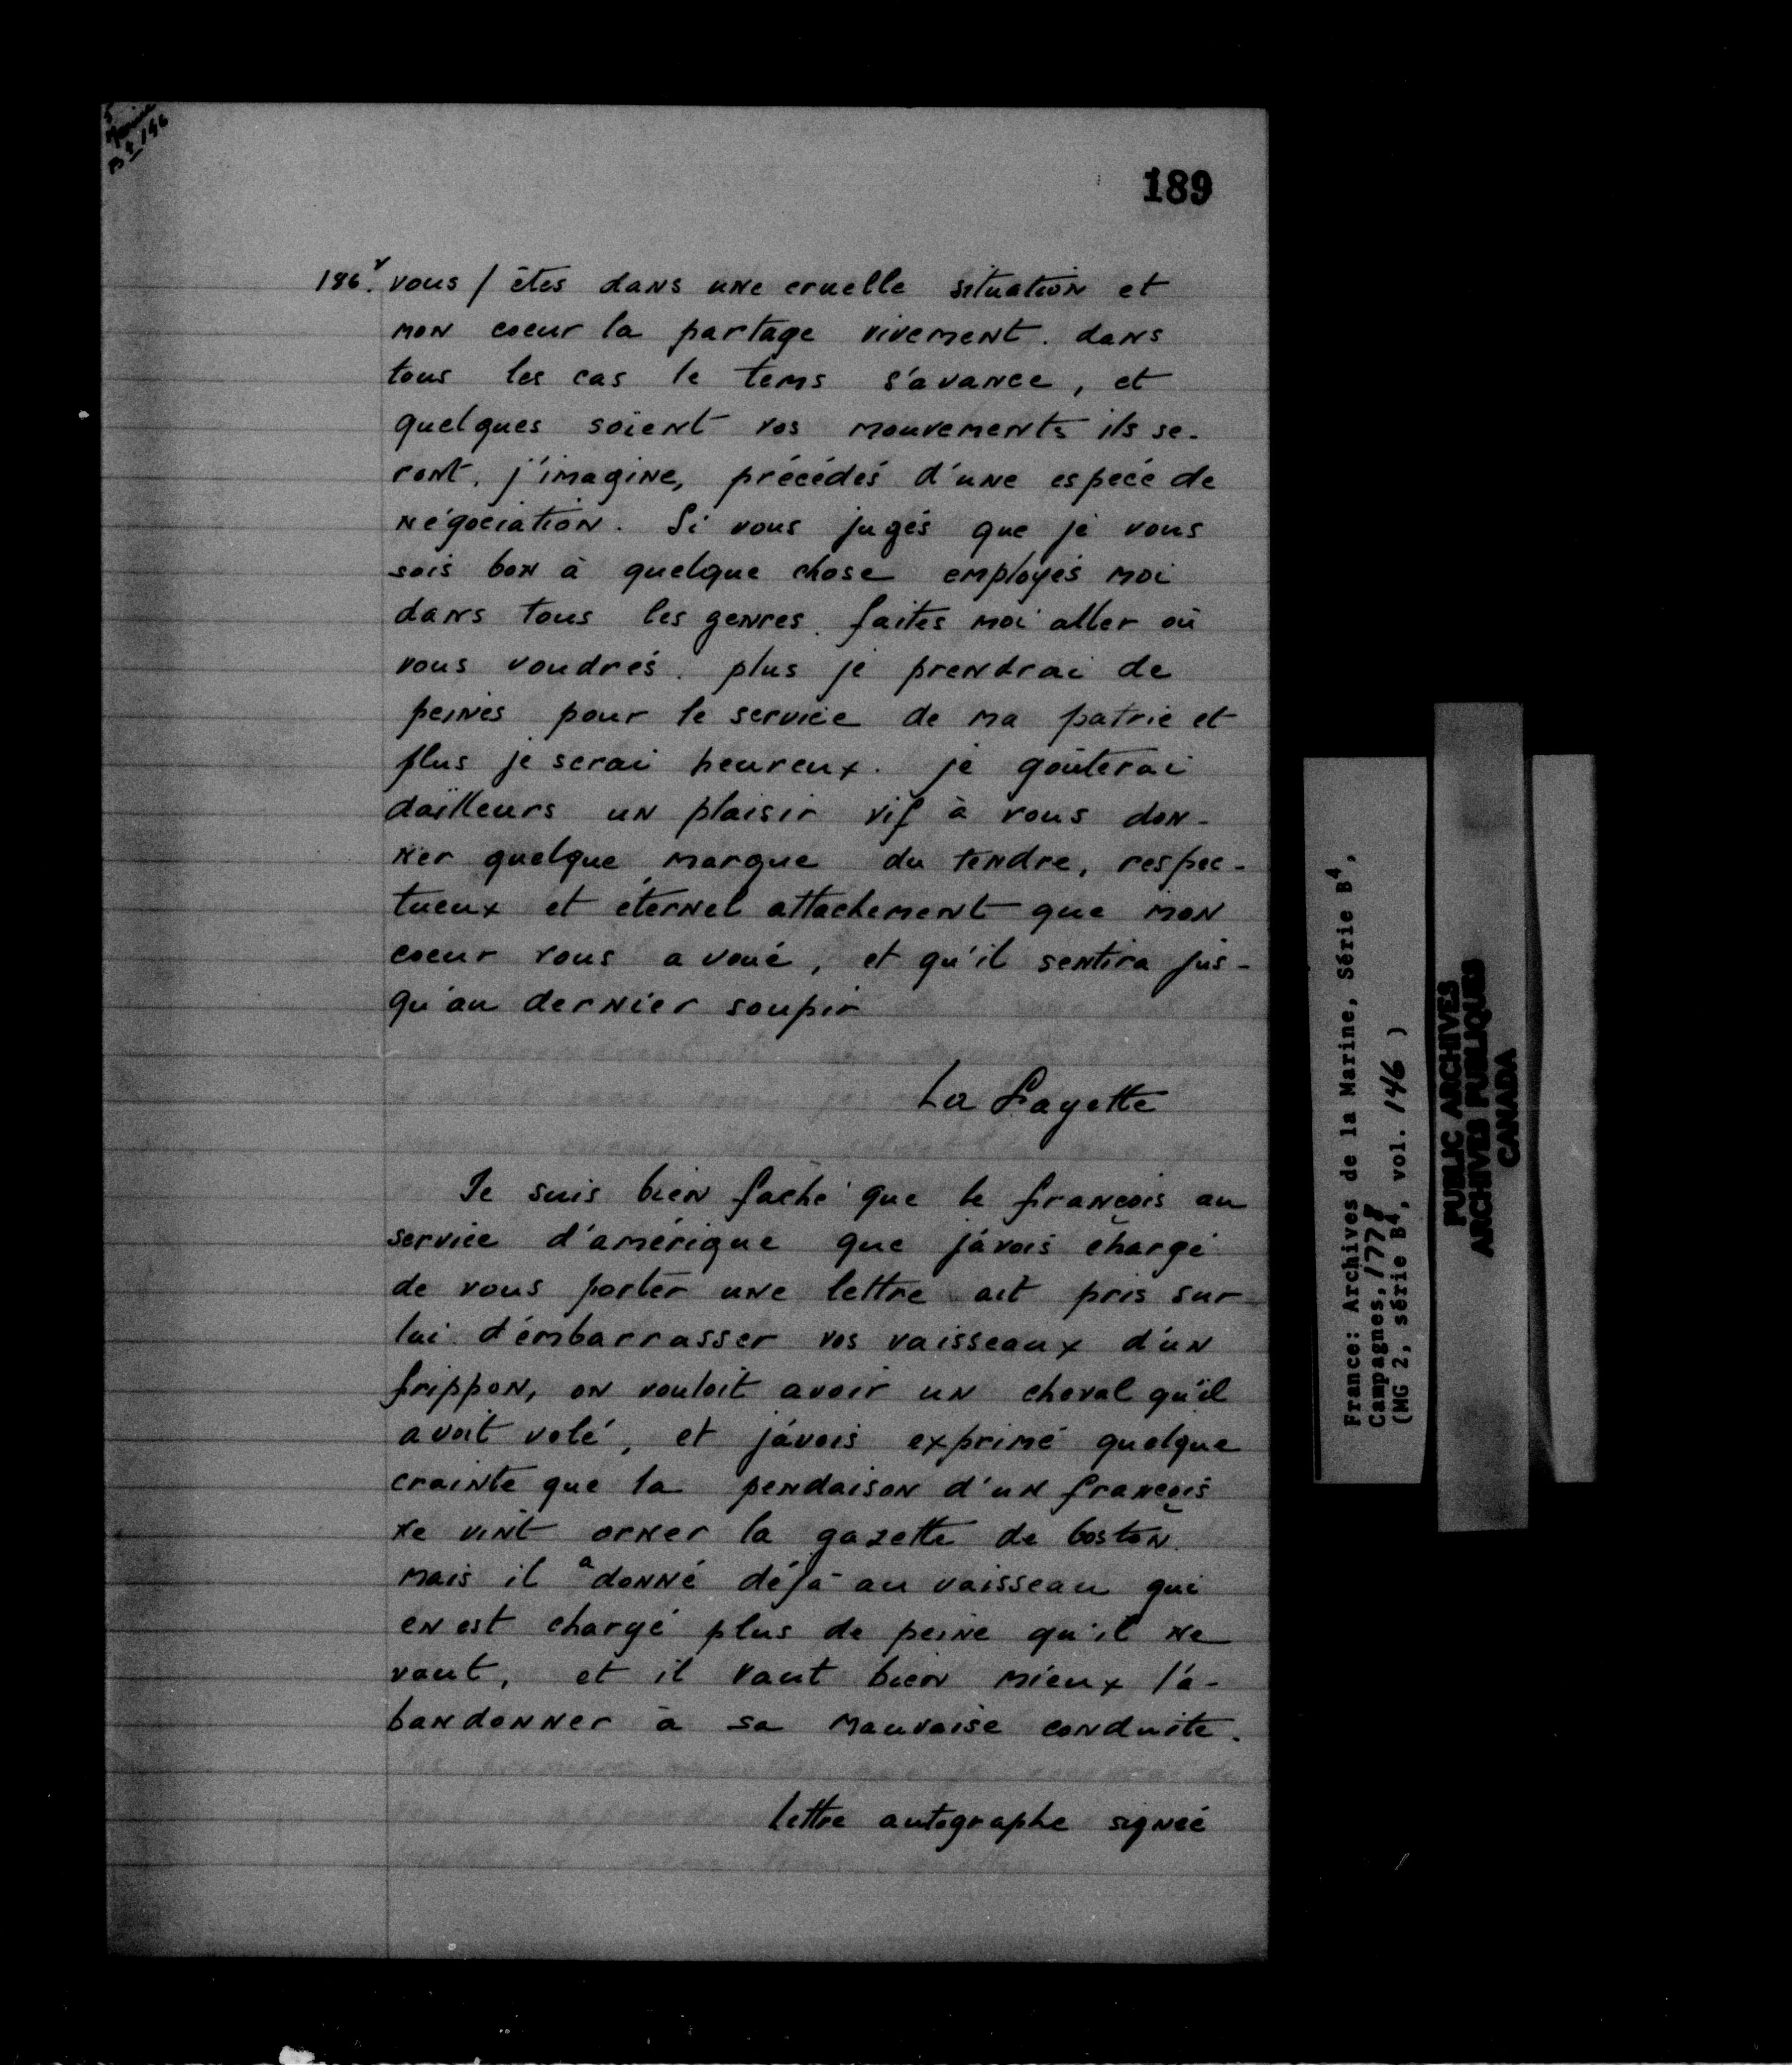 Marine
B4 146
189
186.v vous / êtes dans une cruelle situation et
mon coeur la partage vivement. dans
tous les cas le tems s'avance, et
quelques soient vos mouvements ils se-
ront, j'imagine, précédés d'une espece de
négociation. Si vous jugés que je vous
sois bon à quelque chose employés moi
dans tous les genres. faites moi aller où
vous voudrés. plus je prendrai de
peines pour le service de ma patrie et
plus je serai heureux. je goûterai
dailleurs un plaisir vif à vous don-
ner quelque marque du tendre, respec-
tueux et éternel attachement que mon
coeur vous a voué, et qu'il sentira jus-
qu'au dernier soupir
La Fayette
Je suis bien faché que le françois au
service d'amérique que j'avois chargé
de vous porter une lettre ait pris sur
lui d'embarrasser vos vaisseaux d'un
frippon, on vouloit avoir un cheval qu'il
avoit volé, et j'avois exprimé quelque
crainte que la pendaison d'un françois
ne vint orner la gazette de boston.
mais il a donné déjà au vaisseau qui
en est chargé plus de peine qu'il ne
vaut, et il vaut bien mieux l'a-
bandonner à sa mauvaise conduite.
lettre autographe signée
France: Archives de la Marine, Série B4,
Campagnes, 1778
(MG 2, série B4, vol. 146 )
PUBLIC ARCHIVES
ARCHIVES PUBLIQUES
CANADA